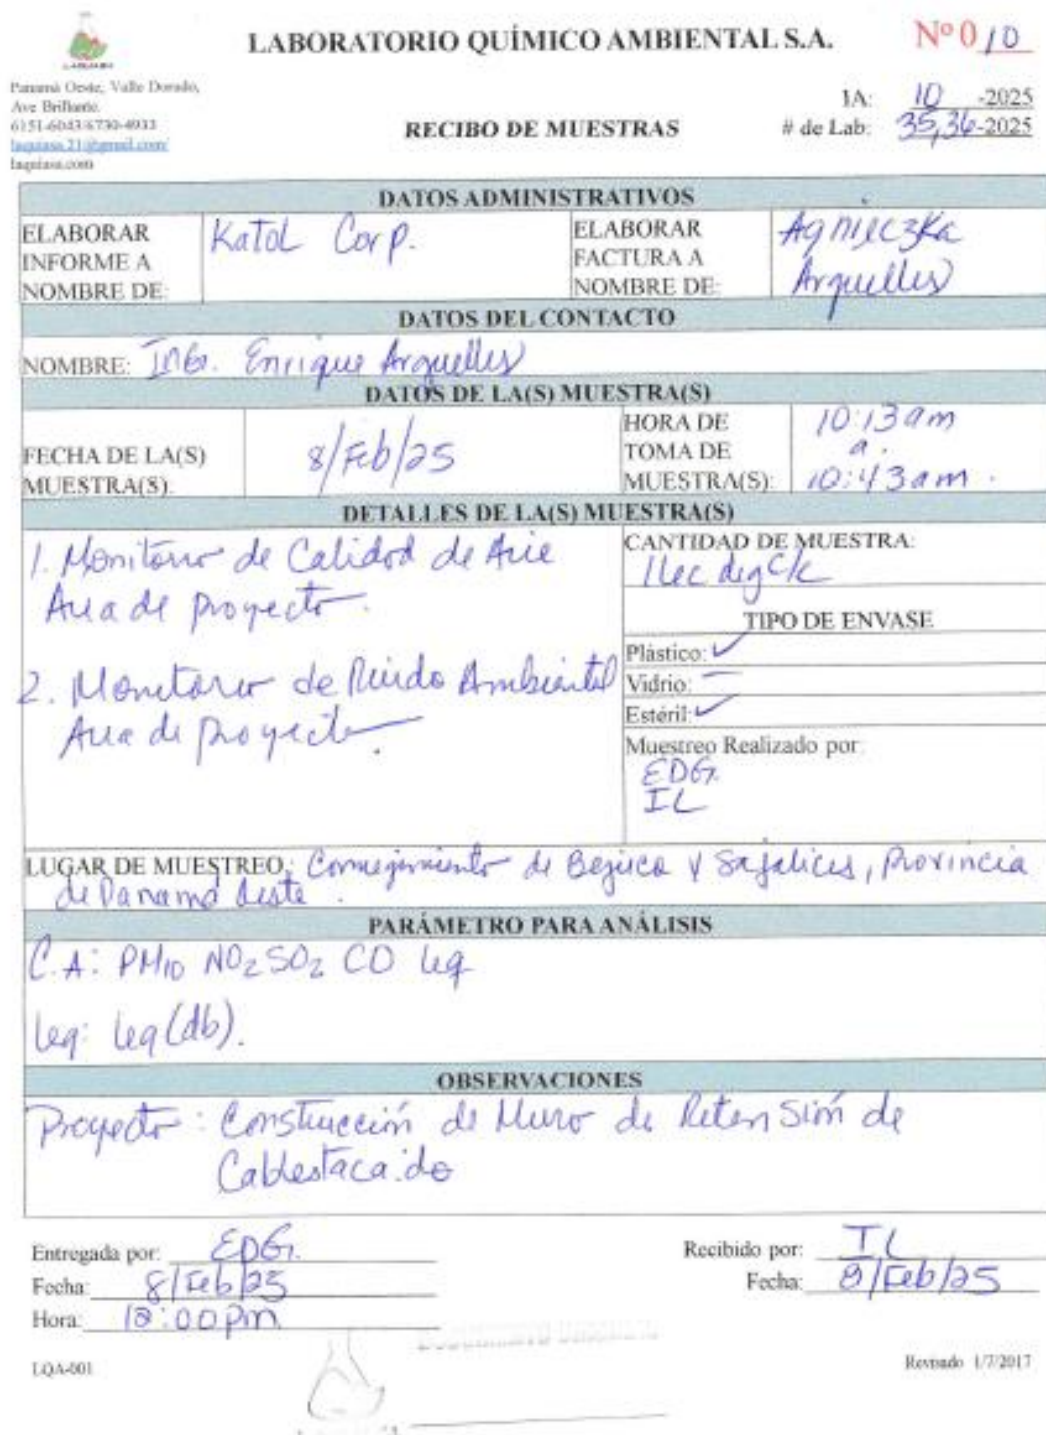 LABORATORIO QUÍMICO AMBIENTAL S.A.
Nº 0 10
Panamá Oeste, Valle Dorado,
Ave Brillante.
6151-6043/6730-4933
laquiasa.21@gmail.com/
laquiasa.com
IA: 10 -2025
RECIBO DE MUESTRAS
# de Lab: 35,36-2025
DATOS ADMINISTRATIVOS
ELABORAR INFORME A NOMBRE DE: Katol Corp.
ELABORAR FACTURA A NOMBRE DE: Agnieczka Arquelles
DATOS DEL CONTACTO
NOMBRE: ING. Enrique Arquelles
DATOS DE LA(S) MUESTRA(S)
FECHA DE LA(S) MUESTRA(S). 8/Feb/25
HORA DE TOMA DE MUESTRA(S): 10:13 am a. 10:43 am.
DETALLES DE LA(S) MUESTRA(S)
1. Monitoreo de Calidad de Aire
Area de proyecto.
2. Monitoreo de Ruido Ambiental
Area de proyecto.
CANTIDAD DE MUESTRA:
1 lec c/c
TIPO DE ENVASE
Plástico: ✓
Vidrio: —
Estéril: ✓
Muestreo Realizado por:
EDG.
IL
LUGAR DE MUESTREO: Corregimiento de Bejuco y Sajalices, Provincia
de Panamá Oeste.
PARÁMETRO PARA ANÁLISIS
C.A: PM10 NO2 SO2 CO leq
leq: leq (db).
OBSERVACIONES
Proyecto: Construcción de Muro de Retensión de
Cablestacado
Entregada por: EDG.
Fecha: 8/Feb/25
Hora: :00 pm
Recibido por: IL
Fecha: 8/Feb/25
LQA-001
Revisado 1/7/2017